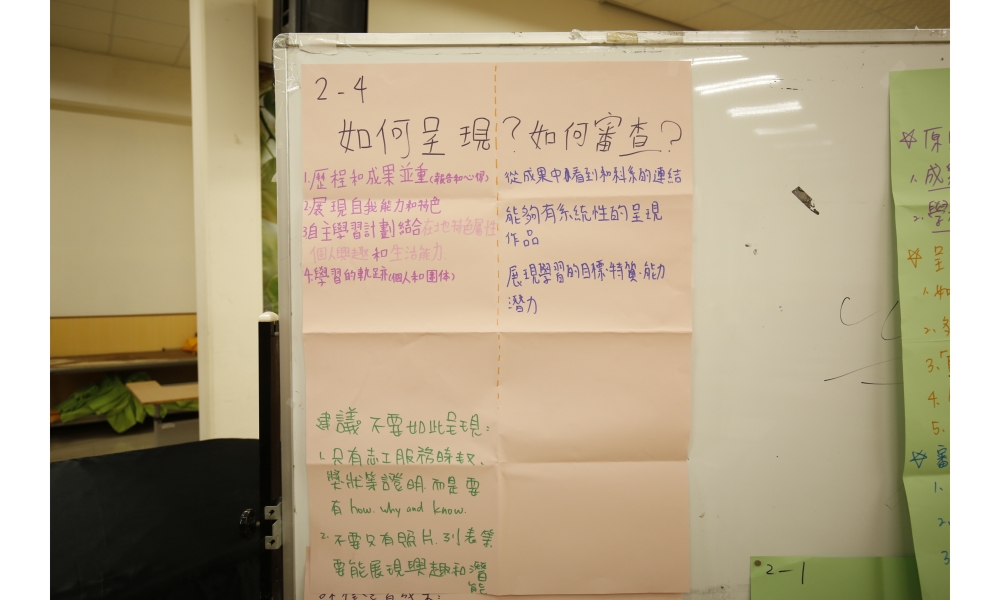 2-4
如何呈現?如何審查?
1.歷程和成果並重(報告和心得)
2.展現自我能力和特色
3.自主學習計劃結合在地特色屬性
個人興趣和生活能力
4.學習的軌跡(個人和團体)
從成果中看到和科系的連結
能夠有系統性的呈現
作品
展現學習的目標.特質.能力
潛力
建議 不要如此呈現:
1.只有志工服務時數、
獎狀等證明,而是要
有how. why and know.
2.不要只有照片.列表業
要能展現興趣和潛能
☆原
1.成
2.學
☆呈
1.如
2.
3.
4.
5.
☆審
1.
2.
3
2-1